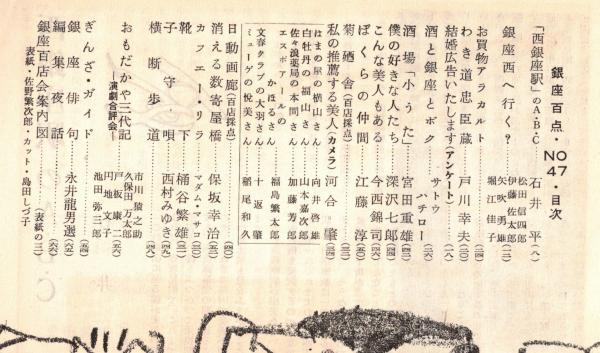 銀座百点・NO47・目次
「西銀座駅」のA・B・C 石井 平(八)
銀座西へ行く? 松田信四郎 伊藤佐太郎 矢吹勇雄 堀江佳子(一二)
お買物アラカルト(二四)
わき道忠臣蔵 戸川幸夫(二〇)
結婚広告いたします(アンケート)
酒と銀座とボク サトウハチロー(二六)
酒場「小うた」 宮田重雄(二八)
僕の好きな人たち 深沢七郎
こんな美人もある 今西錦司
ぼくらの仲間 江藤淳
菊廼舎(百店採点)
私の推薦する美人(カメラ) 河合肇
はまの屋の横山さん 向井啓雄
白牡丹の福山さん 山本嘉次郎
佐々浪薬局の本間さん 加藤芳郎
エスポワールのかほるさん 福島繁太郎
文春クラブの大羽さん 十返肇
ミューゲの悦美さん 稲尾和久
日動画廊(百店採点)(四〇)
消える数寄屋橋 保坂幸治
カフエー・リラ マダム・マサコ
靴下 桶谷繁雄
子守唄 西村みゆき
横断歩道(四八)
おもだかや三代記
―演劇合評会―
市川猿之助 久保田万太郎 戸板康二 円地文子 池田弥三郎
ぎんざ・ガイド
銀座俳句 永井龍男選
編集夜話
銀座百店会案内図(表紙の三)
表紙・佐野繁次郎・カット・島田しづ子